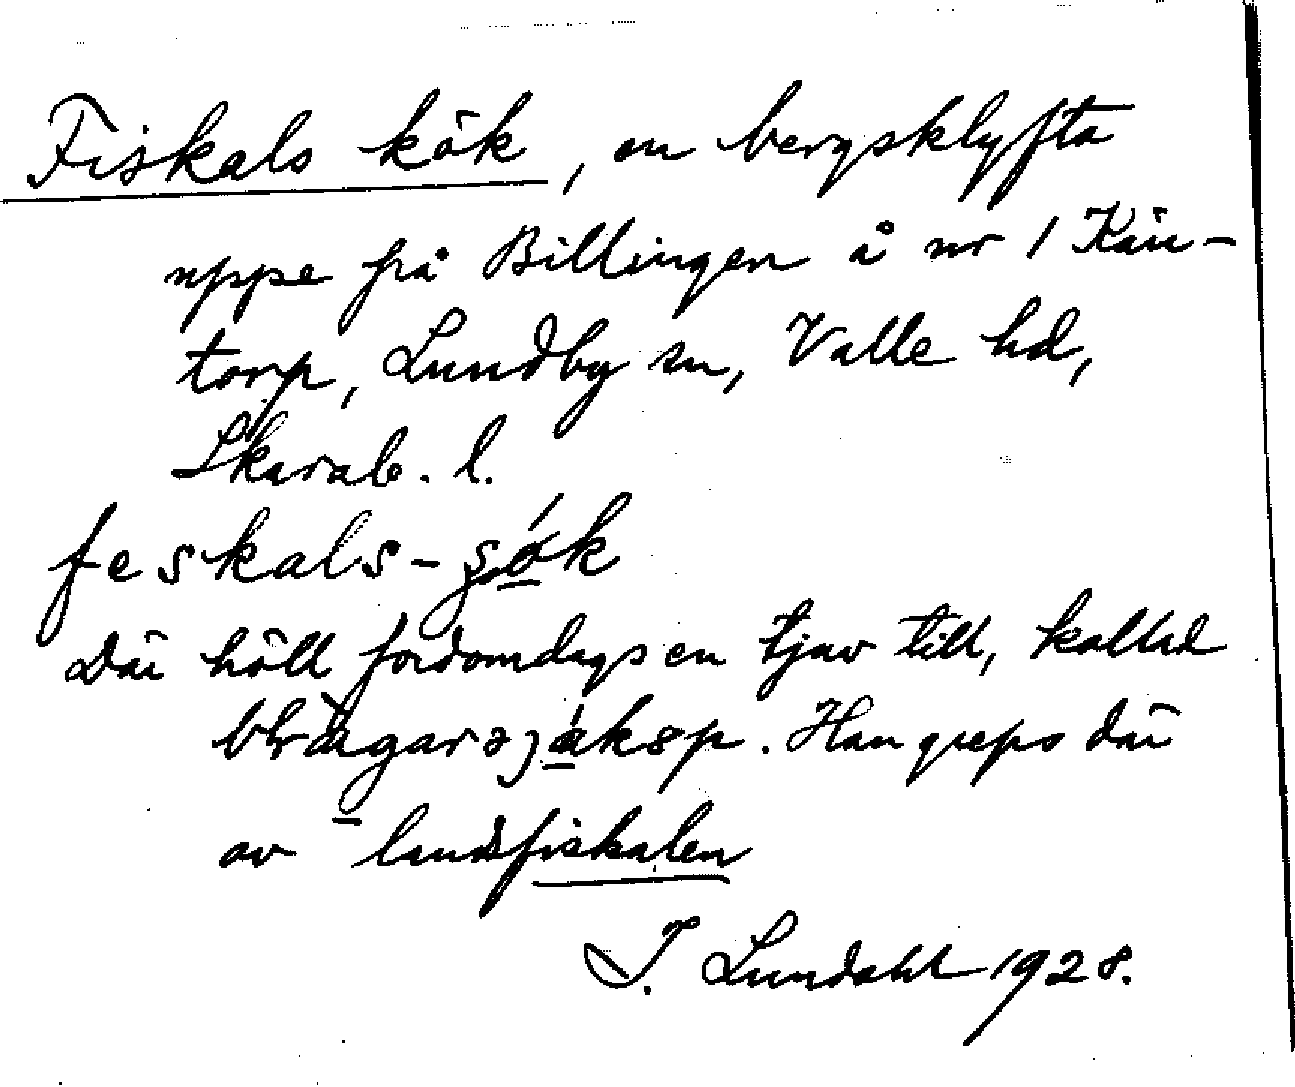 Fiskals kök, en bergsklyfta
uppe på Billingen å nr 1 Kän-
torp, Lundby sn, Valle hd,
Skarab. l.
feskals-
Där höll fordomdags en tjuv till, kallad
. Han greps där
av landsfiskalen
I. Lundahl 1928.